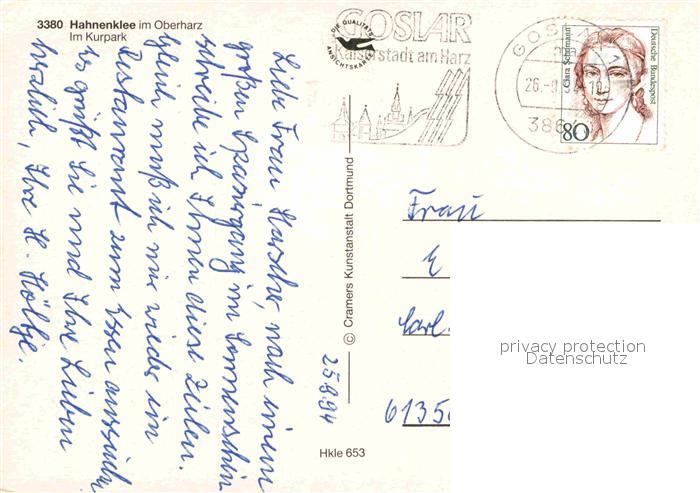 3380 Hahnenklee im Oberharz
Im Kurpark
Liebe Frau Harsche, nach einem
großen Spaziergang im Sonnenschein
schreibe ich Ihnen diese Zeilen.
Gleich muß ich mir wieder im
Restaurant zum Essen aussuchen
Es grüßt Sie und Ihre Lieben
herzlich, Ihre H. Höltje.
25.8.94
© Cramers Kunstanstalt Dortmund
Hkle 653
DIE QUALITÄTS
ANSICHTSKARTE
GOSLAR
Kaiserstadt am Harz
GOSLAR 1
26.-8
10
Clara Schumann
Deutsche Bundespost
80
Frau
E
Carl.
6135
privacy protection
Datenschutz